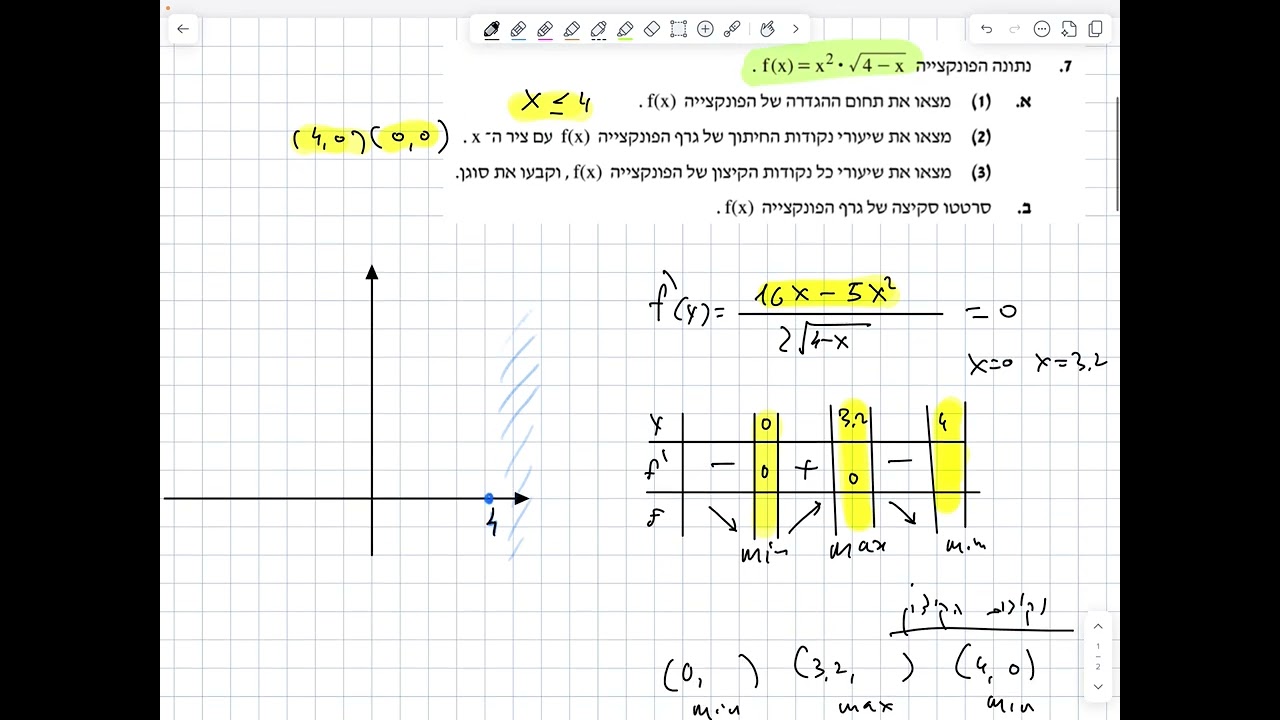 7. נתונה הפונקצייה f(x) = x² • √4 − x .
א. (1) מצאו את תחום ההגדרה של הפונקצייה f(x) . x ≤ 4
(2) מצאו את שיעורי נקודות החיתוך של גרף הפונקצייה f(x) עם ציר ה־ x . (4,0) (0,0)
(3) מצאו את שיעורי כל נקודות הקיצון של הפונקצייה f(x) , וקבעו את סוגן.
ב. סרטטו סקיצה של גרף הפונקצייה f(x) .
f'(x) = (16x − 5x²) / (2√4-x) = 0
x=0 x=3.2
x 0 3.2 4
f' − 0 + 0 −
f ↘ ↗ ↘
min max min
4
נקודות הקיצון
(0, ) (3.2, ) (4, 0)
min max min
1
2